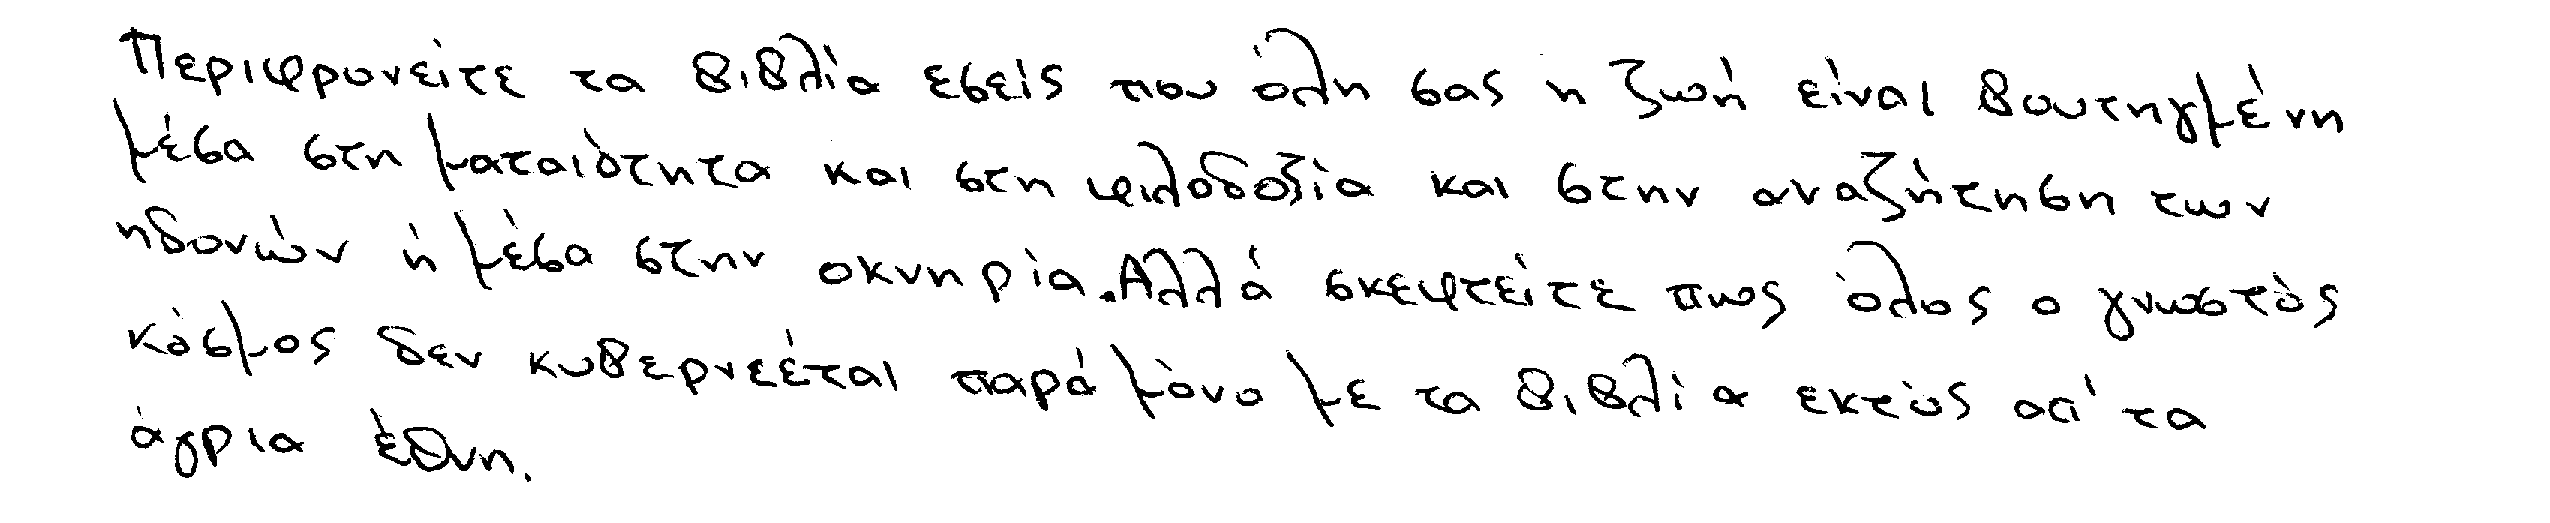 Περιφρονείτε τα βιβλία εσείς που όλη σας η ζωή είναι βουτηγμένη
μέσα στη ματαιότητα και στη φιλοδοξία και στην αναζήτηση των
ηδονών ή μέσα στην οκνηρία. Αλλά σκεφτείτε πως όλος ο γνωστός
κόσμος δεν κυβερνεέται παρά μόνο με τα βιβλία εκτός απ' τα
άγρια έθνη.